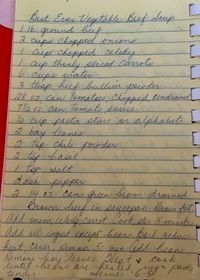 Best Ever Vegetable Beef Soup
1 lb. ground beef
2 cups chopped onions
1 cup chopped celery
1 cup thinly sliced carrots
6 cups water
3 tbsp beef bullion powder
28 oz can tomatoes, chopped, undrained
7½ oz can tomato sauce
½ cup pasta stars or alphabets
2 bay leaves
2 tsp chile powder
2 tsp basil
1 tsp salt
dash pepper
2 14 oz cans green beans drained
Brown beef in saucepan. Drain fat
Add onion, celery, carrot. Cook stir 5 minutes
Add all ingred except beans. Boil reduce
heat cover simmer 50 min. Add beans
Remove bay leaves. Heat & cook
until beans are heated, pasta
tender. serves 6-8